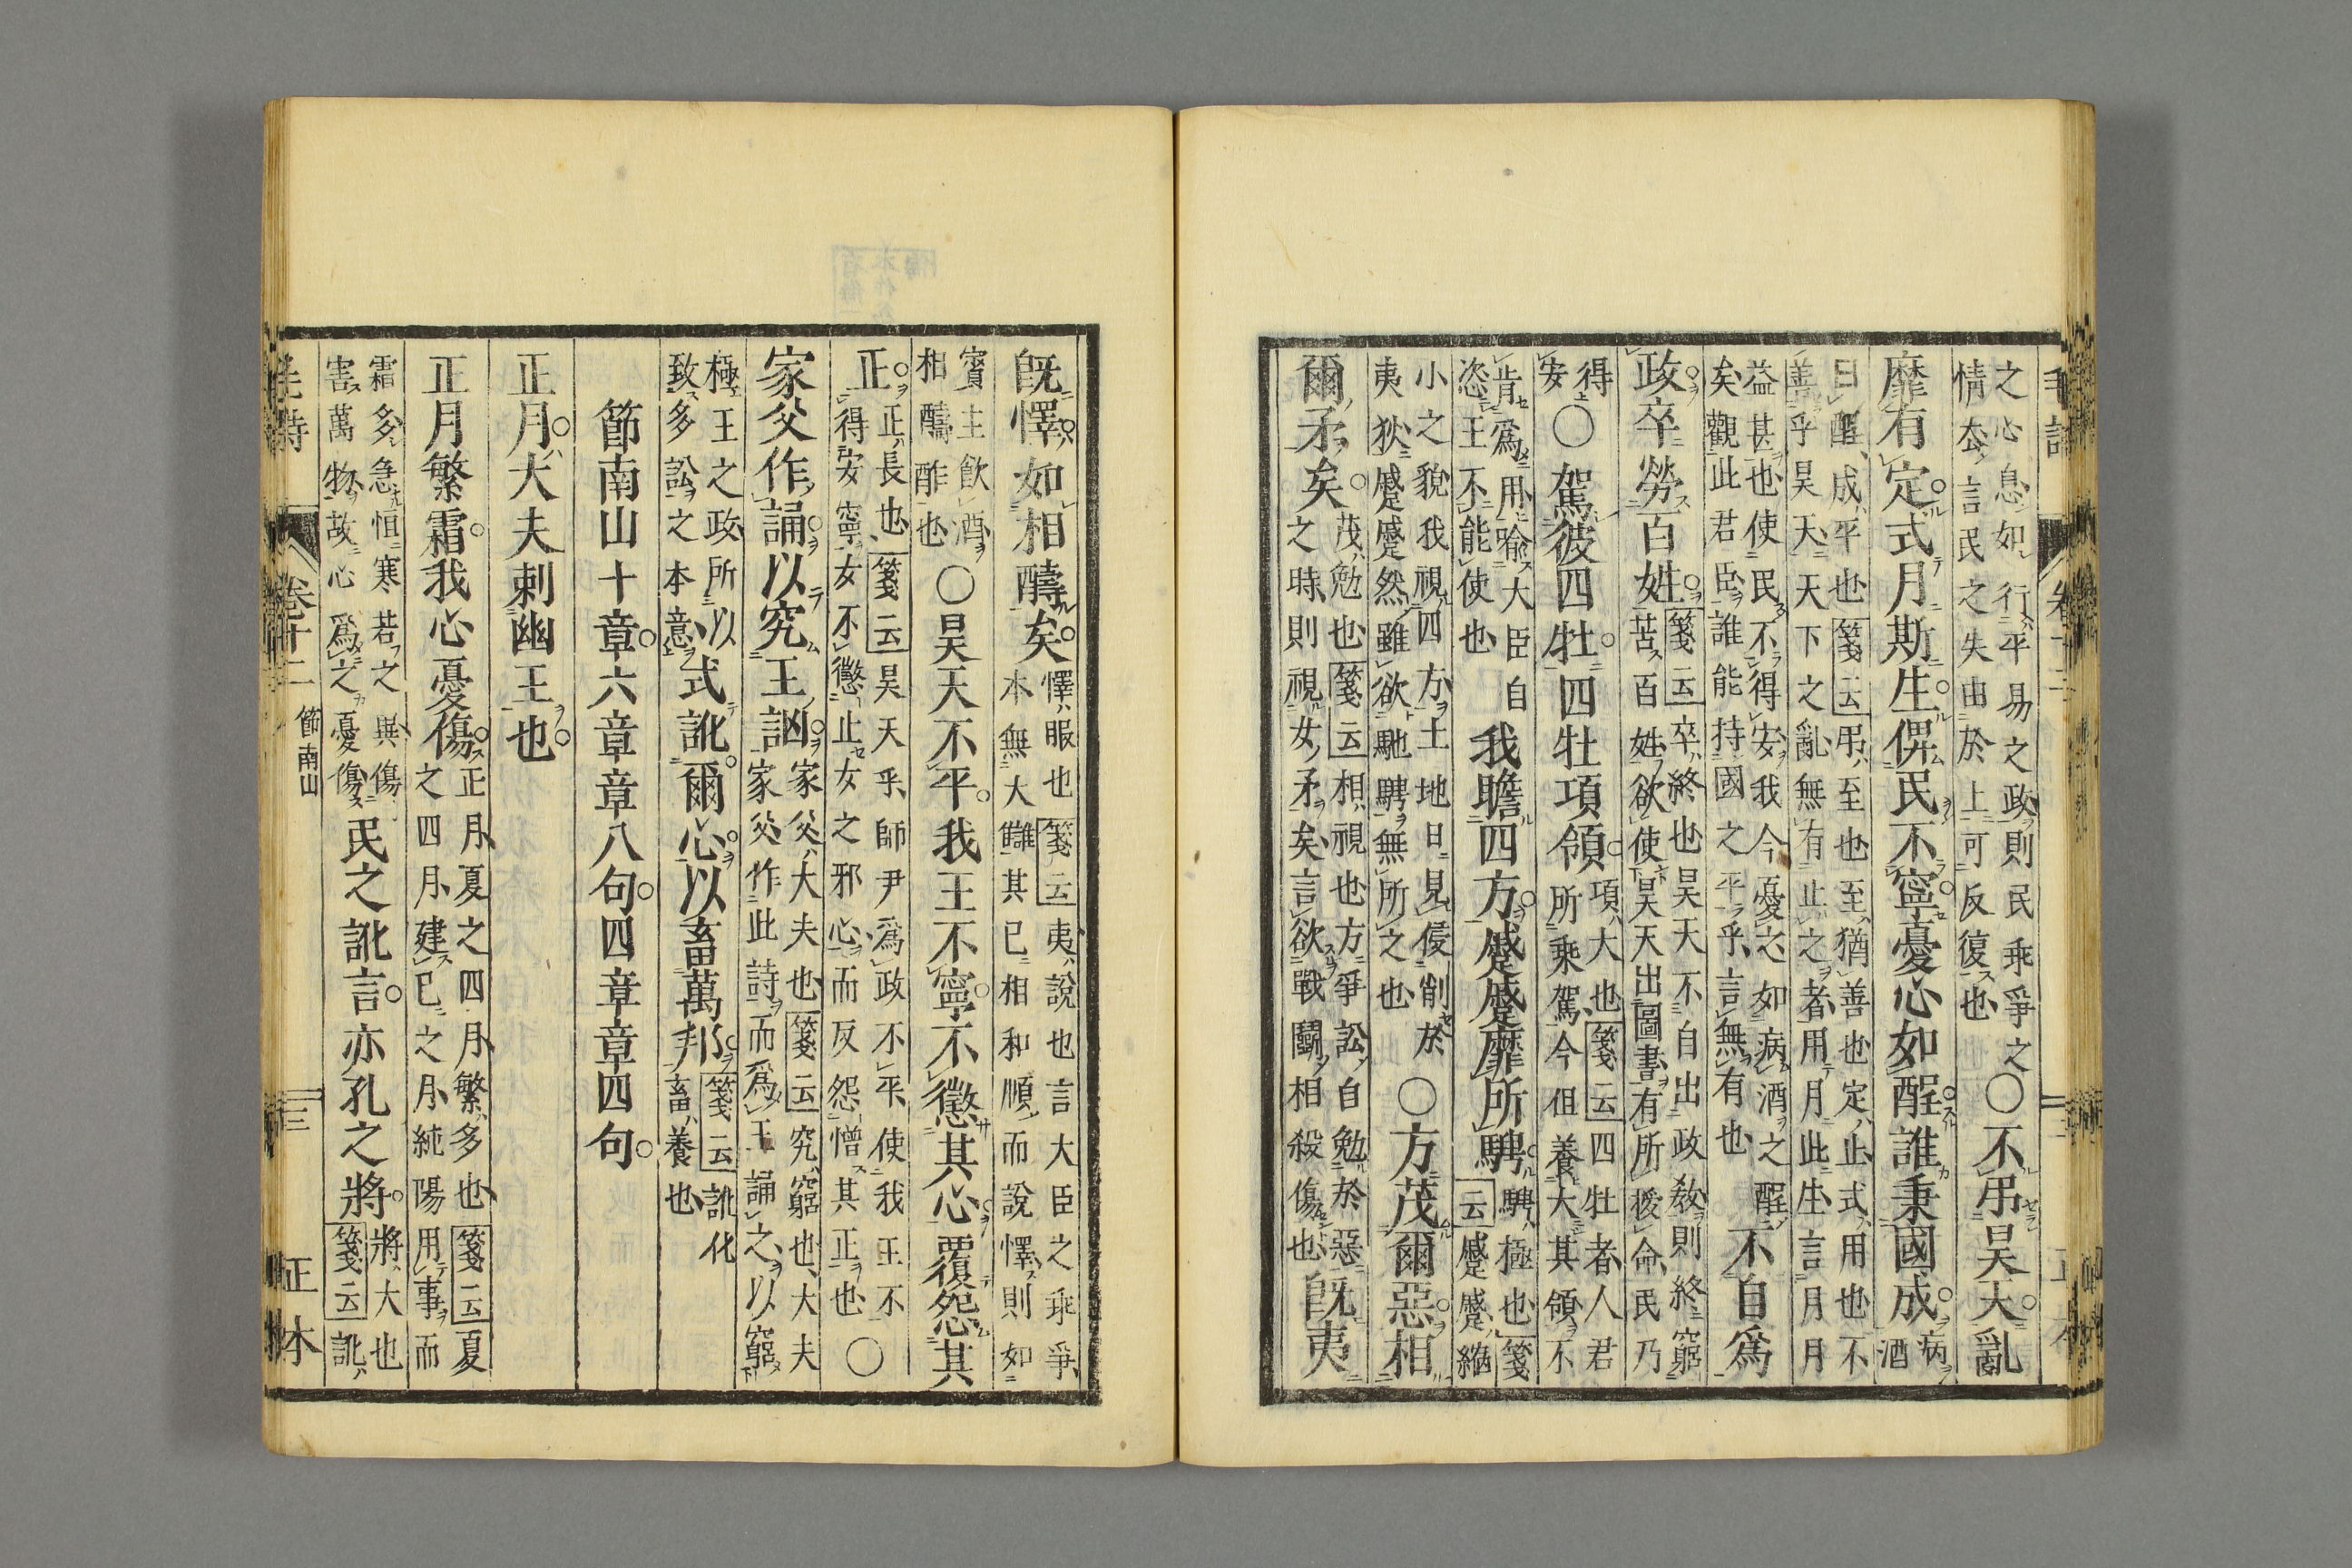 毛詩
之心息如行平易之政則民乖爭之
情去言民之失由於上可反復也
○不弔昊天亂
靡有定式月斯生俾民不寧憂心如酲誰秉國成
病
酒
曰酲成平也箋云弔至也至猶善也定止式用也不
善乎昊天天下之亂無有止之者用月此生言月月
益甚也使民不得安我今憂之如病酒之酲
矣觀此君臣誰能持國之平乎言無有也
不自爲
政卒勞百姓
箋云卒終也昊天不自出政敎則終窮
苦百姓欲使昊天出圖書有所授命民乃
得
安
○駕彼四牡四牡項領
項大也箋云四牡者人君
所乘駕今但養大其領不
肯爲用喻大臣自
恣王不能使也
我瞻四方蹙蹙靡所騁
騁極也箋
云蹙蹙縮
小之貌我視四方土地日見侵削於
夷狄蹙蹙然雖欲馳騁無所之也
○方茂爾惡相
爾矛矣
茂勉也箋云相視也方爭訟自勉於惡
之時則視女矛矣言欲戰鬭相殺傷也
旣夷
旣懌如相醻矣
懌服也箋云夷說也言大臣之乖爭
本無大讎其已相和順而說懌則如
賓主飮酒
相醻酢也
○昊天不平我王不寧不懲其心覆怨其
正
正長也箋云昊天乎師尹爲政不平使我王不
得安寧女不懲止女之邪心而反怨憎其正也
○
家父作誦以究王訩
家父大夫也箋云究窮也大夫
家父作此詩而爲王誦之以窮
極王之政所以
致多訟之本意
式訛爾心以畜萬邦
箋云訛化
畜養也
節南山十章六章章八句四章章四句
正月大夫刺幽王也
正月繁霜我心憂傷
正月夏之四月繁多也箋云夏
之四月建巳之月純陽用事而
霜多急恒寒若之異傷
害萬物故心爲之憂傷
民之訛言亦孔之將
將大也
箋云訛
毛詩 卷十二 節南山 三 正本